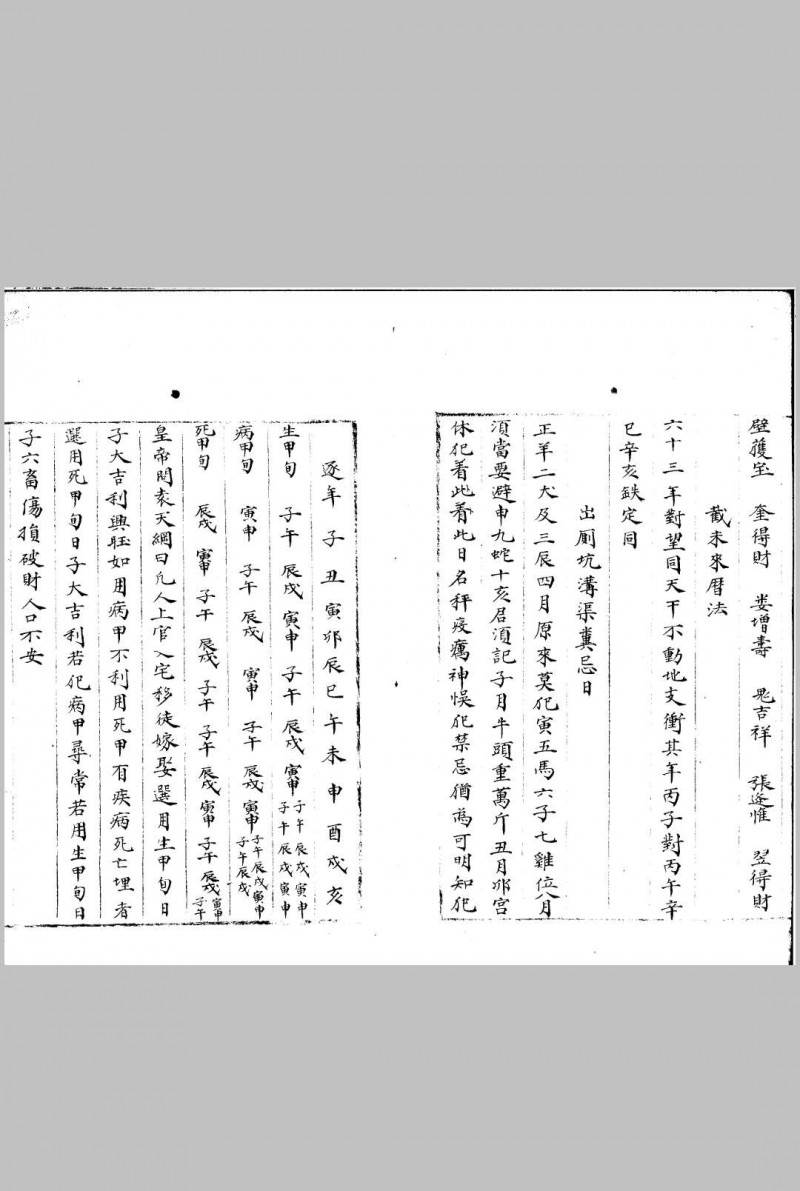 壁獲寶 奎得財 娄增壽 鬼吉祥 張逢惟 翌得財
截未來曆法
六十三年對望同天干不動地支衝其年丙子對丙午辛
巳辛亥鉄定同
出厠坑溝渠糞忌日
正羊二犬及三辰四月原來莫犯寅五馬六子七雞位八月
須當要避申九蛇十亥君須記子月牛頭重萬斤丑月卯宮
休犯着此着此日名秤疫癘神悮犯禁忌猶為可明知犯
逐年 子丑寅卯辰巳午未申酉戍亥
生甲旬 子午 辰戍 寅申 子午 辰戍 寅申 子午 辰戍 寅申 子午 辰戍 寅申
病甲旬 寅申 子午 辰戍 寅申 子午 辰戍 寅申 子午 辰戍 寅申 子午 辰戍
死甲旬 辰戍 寅申 子午 辰戍 子午 子午 辰戍 寅申 子午 辰戍 寅申 子午
皇帝問袁天綱曰凢人上官入宅移徒嫁娶選用生甲旬日
子大吉利興旺如用病甲不利用死甲有疾病死亡埋者
選用死甲旬日子大吉利若犯病甲尋常若用生甲旬日
子六畜傷損破財人口不安